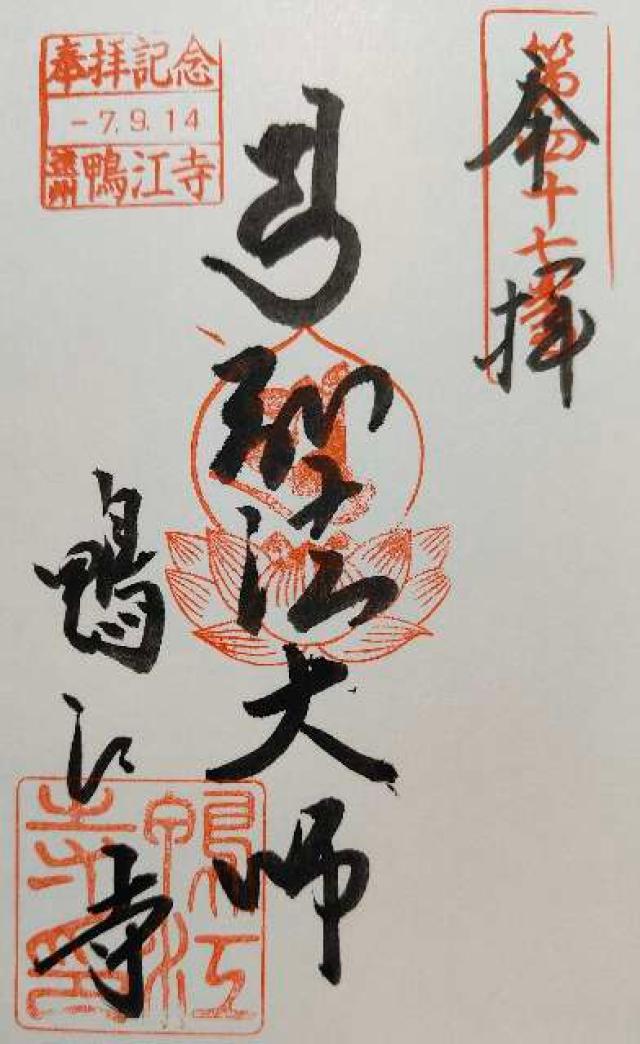 第四十七
奉拝
弘法大師
鴨江寺
奉拝記念
-7.9.14
遠州 鴨江寺
鴨江
寺印